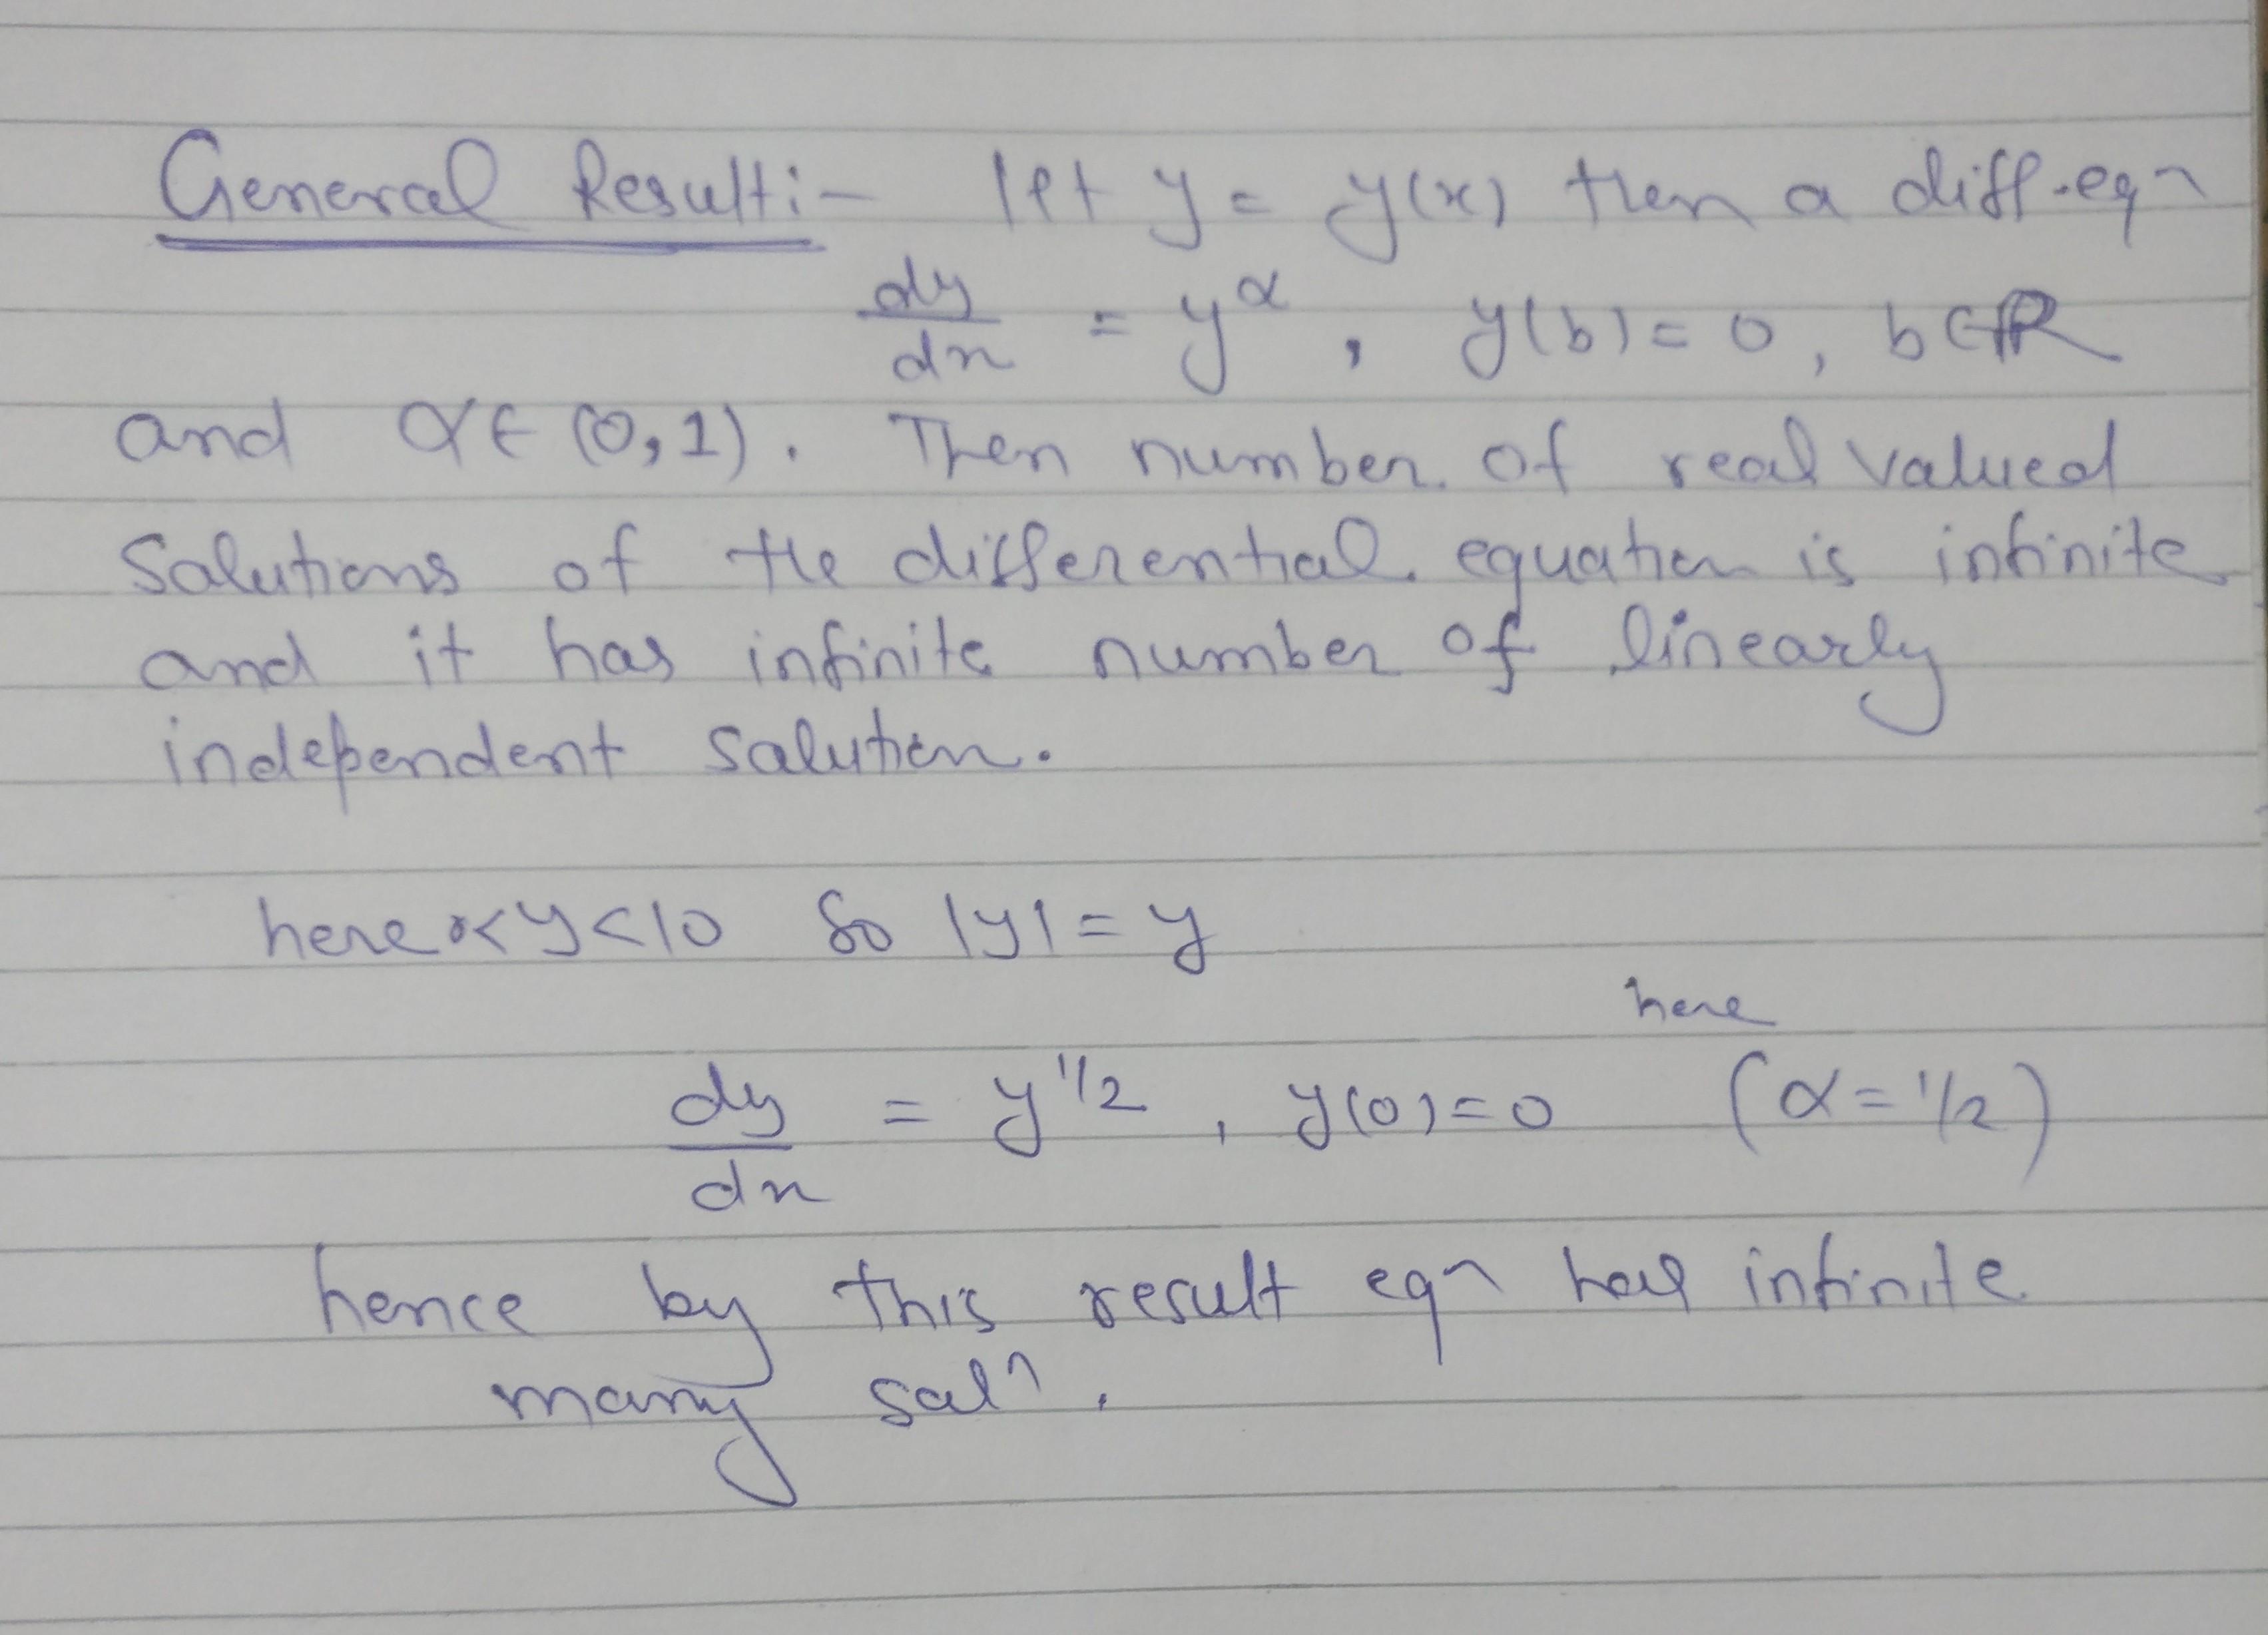 General Result:- let y = y(x) then a diff.eqn
dy/dx = y^α, y(b)=0, b∈R
and α∈(0,1). Then number of real valued
Solutions of the differential equation is infinite
and it has infinite number of linearly
independent solution.
here 0<y<10 So |y|=y
here
dy/dx = y^1/2, y(0)=0 (α=1/2)
hence by this result eqn has infinite
many soln.